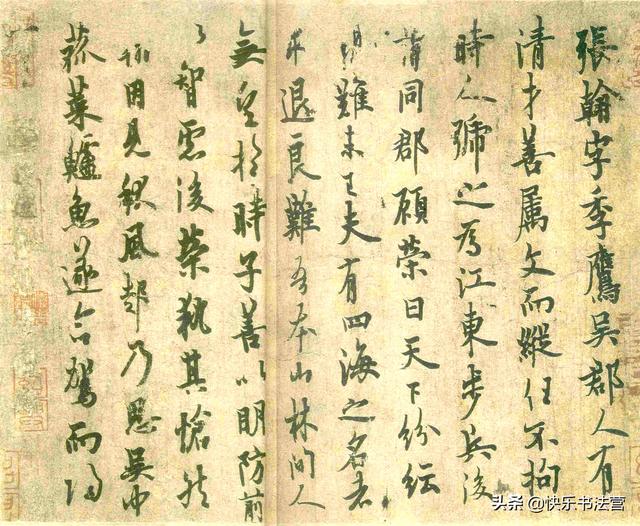 張翰字季鷹吳郡人有
清才善屬文而縱任不拘
時人號之為江東步兵後
謂同郡顧榮曰天下紛紜
難未已夫有四海之名者
求退良難吾本山林間人
無望於時子善以明防前
以智慮後榮執其愴然
翰因見秋風起乃思吳中
菰菜鱸魚遂命駕而歸
头条 @快乐书法营